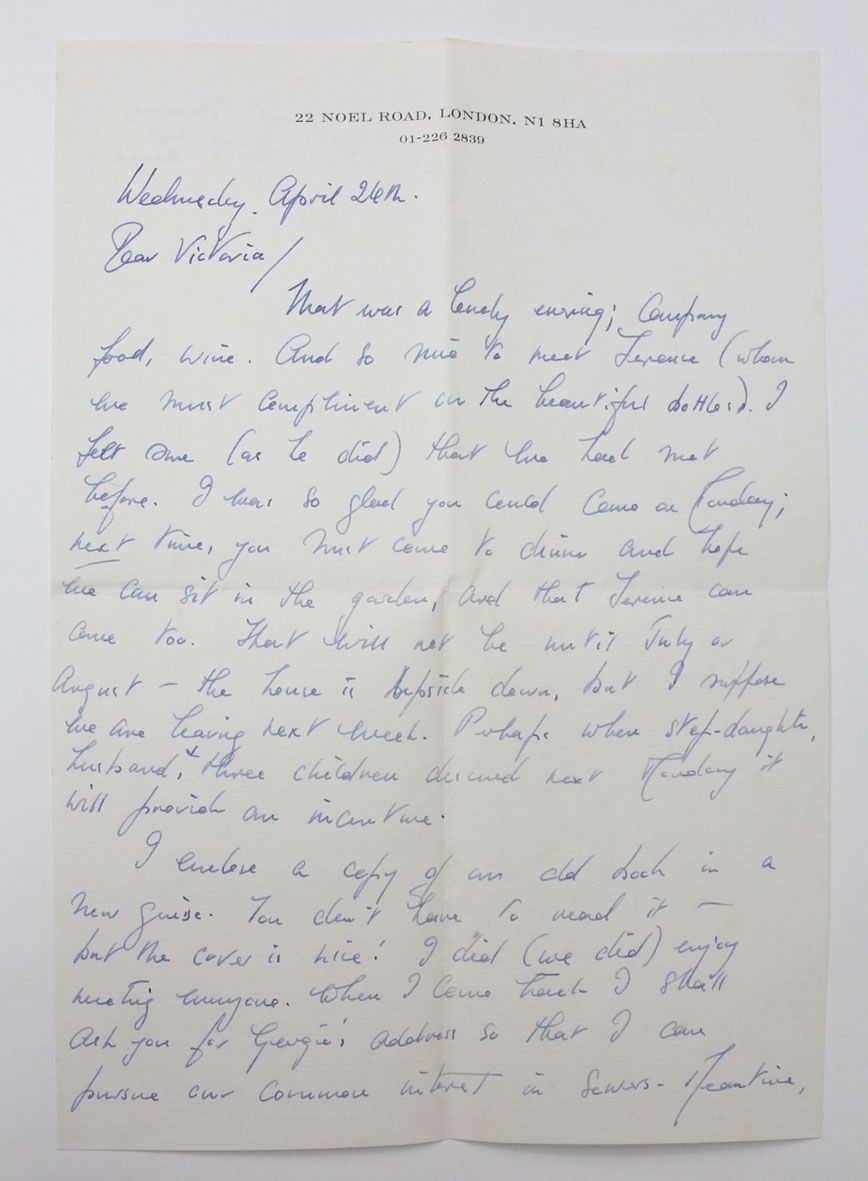 22 NOEL ROAD, LONDON, N1 8HA
01-226 2839
Wednesday, April 26th.
Dear Victoria/
That was a lovely evening; Company
food, wine. And so nice to meet Terence (whom
we must compliment on the beautiful bottles). I
felt sure (as he did) that we had met
before. I was so glad you could come on Monday;
next time, you must come to dinner and hope
we can sit in the garden, and that Terence can
come too. That will not be until July or
August – the house is upside down, but I suppose
we are leaving next week. Perhaps when step-daughter,
husband, + three children descend next Monday it
will provide an incentive.
I enclose a copy of an old book in a
new guise. You don't have to read it –
but the cover is nice! I did (we did) enjoy
meeting everyone. When I come back I shall
ask you for Georgie's address so that I can
pursue our common interest in sewers. Meantime,